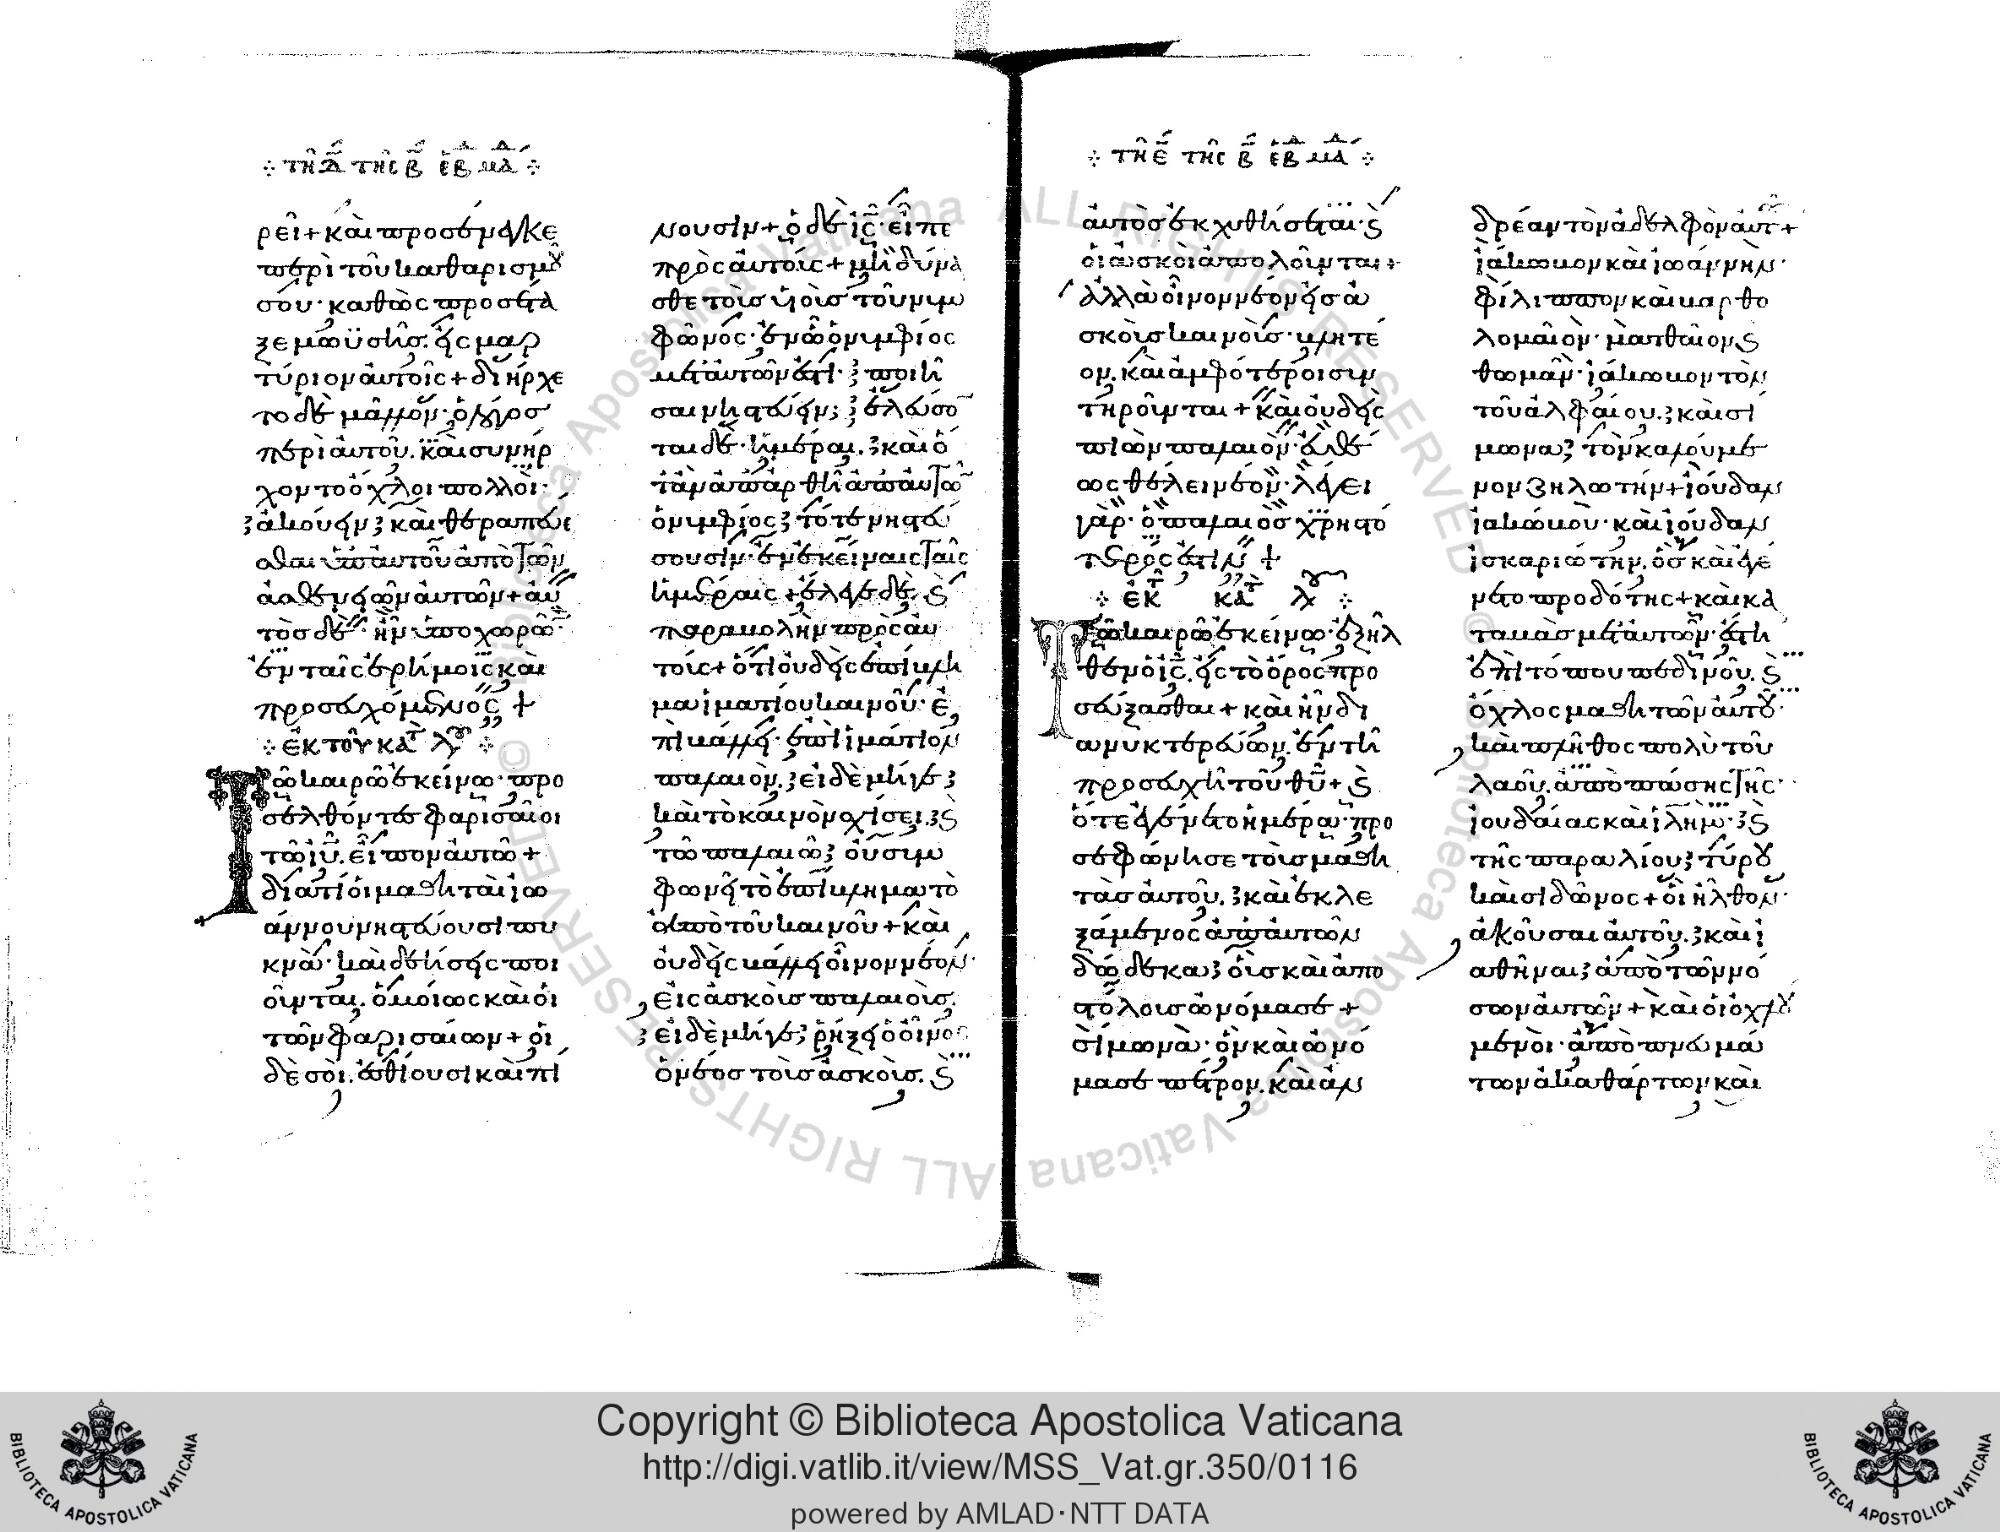 τῆ δ τῆς β ἑβδμάδ
ρεῖ + καὶ προσένεγκε
περὶ τοῦ καθαρισμοῦ
σου· καθὼς προσέτα
ξε μωϋσῆς. εἰς μαρ
τύριον αὐτοῖς + διήρχε
το δὲ μᾶλλον· ὁ λόγος
περὶ αὐτοῦ. καὶ συνήρ
χοντο ὄχλοι πολλοὶ·
ἀκούειν καὶ θεραπεύε
σθαι ὑπ' αὐτοῦ ἀπὸ τῶν
ἀσθενειῶν αὐτῶν + αὐ
τὸς δὲ ἦν ὑποχωρῶν
ἐν ταῖς ἐρήμοις καὶ
προσευχόμενος +
ἐκ τοῦ κατ λγ
Τῶ καιρῶ ἐκείνω· προ
σελθόντες φαρισαῖοι
τῶ ιυ. εἶπον αὐτῶ +
διατί οἱ μαθηταὶ ἰω
άννου νηστεύουσι πυ
κνὰ· καὶ δεήσεις ποι
οῦνται. ὁμοίως καὶ οἱ
τῶν φαρισαίων + οἱ
δὲ σοὶ. ἐσθίουσι καὶ πί
νουσιν + ὁ δὲ ις· εἶπε
πρὸς αὐτοὺς + μὴ δύνα
σθε τοὺς υἱοὺς τοῦ νυμ
φῶνος· ἐν ὧ ὁ νυμφίος
μετ' αὐτῶν ἐστι· ποιῆ
σαι νηστεύειν; ἐλεύσο
ται δὲ ἡμέραι. καὶ ὅ
τὰν ἀπαρθῆ ἀπ' αὐτῶν
ὁ νυμφίος τότε νηστεύ
σουσιν· ἐν ἐκείναις ταῖς
ἡμέραις + ἔλεγε δὲ. καὶ
παραβολὴν πρὸς αὐ
τοὺς + ὅτι οὐδεὶς ἐπίβλη
μα ἱματίου καινοῦ· ἐ
πιβάλλει· ἐπὶ ἱμάτιον
παλαιὸν. εἰ δὲ μήγε
καὶ τὸ καινὸν σχίσει. καὶ
τῶ παλαιῶ οὐ συμ
φωνεῖ τὸ ἐπίβλημα τὸ
ἀπὸ τοῦ καινοῦ + καὶ
οὐδεὶς βάλλει οἶνον νέον·
εἰς ἀσκοὺς παλαιοὺς.
εἰ δὲ μήγε ῥήξει ὁ οἶνος
ὁ νέος τοὺς ἀσκοὺς. καὶ
τῆ ε τῆς β ἑβδμάδ
αὐτὸς ἐκχυθήσεται· καὶ
οἱ ἀσκοὶ ἀπολοῦνται +
ἀλλὰ οἶνον νέον εἰς ἀ
σκοὺς καινοὺς· βλητέ
ον. καὶ ἀμφότεροι συν
τηροῦνται + καὶ οὐδεὶς
πιὼν παλαιὸν· εὐθέ
ως θέλει νέον· λέγει
γὰρ· ὁ παλαιὸς χρηστό
τερός ἐστιν +
ἐκ κατ λγ
Τῶ καιρῶ ἐκείνω· ἐξῆλ
θεν ὁ ις. εἰς τὸ ὄρος προ
σεύξασθαι + καὶ ἦν δι
ανυκτερεύων. ἐν τῆ
προσευχῆ τοῦ θυ + καὶ
ὅτε ἐγένετο ἡμέρα· προ
σεφώνησε τοὺς μαθη
τὰς αὐτοῦ. καὶ ἐκλε
ξάμενος ἀπ' αὐτῶν
δώδεκα οὓς καὶ ἀπο
στόλους ὠνόμασε +
σίμωνα· ὃν καὶ ὠνό
μασε πέτρον. καὶ ἀν
δρέαν τὸν ἀδελφὸν αὐτ +
ἰάκωβον καὶ ἰωάννην·
φίλιππον καὶ βαρθο
λομαῖον· ματθαῖον καὶ
θωμᾶν· ἰάκωβον τὸν
τοῦ ἀλφαίου. καὶ σί
μωνα τὸν καλούμε
νον ζηλωτήν + ἰούδαν
ἰακώβου· καὶ ἰούδαν
ἰσκαριώτην. ὃς καὶ ἐγέ
νετο προδότης + καὶ κα
ταβὰς μετ' αὐτῶν· ἔστη
ἐπὶ τόπου πεδινοῦ. καὶ
ὄχλος μαθητῶν αὐτοῦ·
καὶ πλῆθος πολὺ τοῦ
λαοῦ. ἀπὸ πάσης τῆς
ἰουδαίας καὶ ἰλημ· καὶ
τῆς παραλίου τύρου
καὶ σιδῶνος + οἳ ἦλθον·
ἀκοῦσαι αὐτοῦ. καὶ ἰ
αθῆναι ἀπὸ τῶν νό
σων αὐτῶν + καὶ οἱ ὀχλού
μενοι· ἀπὸ πνευμά
των ἀκαθάρτων καὶ
Copyright © Biblioteca Apostolica Vaticana
http://digi.vatlib.it/view/MSS_Vat.gr.350/0116
powered by AMLAD·NTT DATA
BIBLIOTECA APOSTOLICA VATICANA
BIBLIOTECA APOSTOLICA VATICANA
© Biblioteca Apostolica Vaticana ALL RIGHTS RESERVED
© Biblioteca Apostolica Vaticana ALL RIGHTS RESERVED